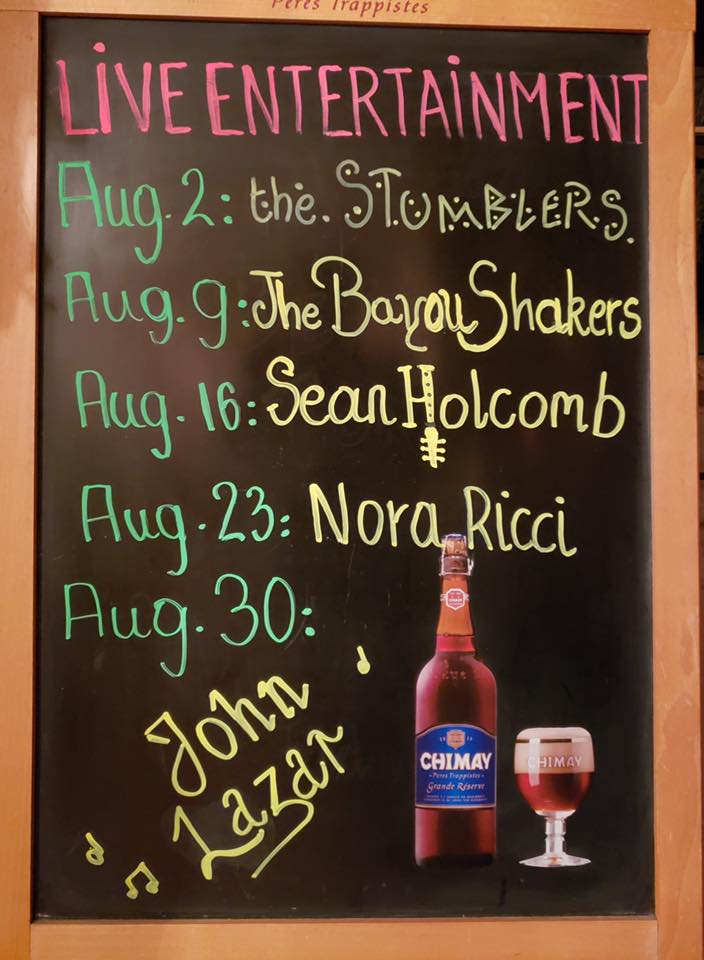 Pères Trappistes
LiVE ENTERTAiNMENT
Aug. 2: the. STUMBLERS.
Aug. 9: The Bayou Shakers
Aug. 16: Sean Holcomb
Aug. 23: Nora Ricci
Aug. 30:
John
Lazar
CHIMAY
CHIMAY
Pères Trappistes
Grande Réserve
CHIMAY